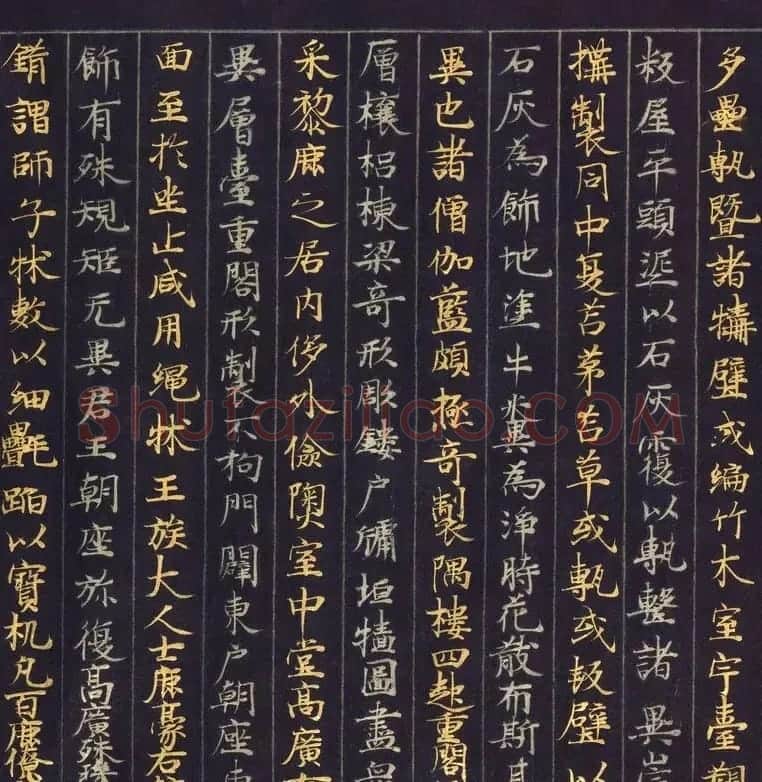 多壘甎暨諸墻壁或編竹木室宇臺
板屋平頭泥以石灰覆以甎墼諸異崇
搆製同中夏苫茅苫草或甎或板壁以
石灰為飾地塗牛糞為淨時花散布斯其
異也諸僧伽藍頗極奇製隅樓四起重閣
層榱梠棟梁奇形彫鏤户牖垣墻圖畫衆
采黎庶之居内侈外儉隩室中堂高廣有
異層臺重閣形製不拘門闢東户朝座東
面至於坐止咸用繩牀王族大人士庶豪右
飾有殊規矩无異君王朝座弥復高廣珠璣
錯謂師子牀敷以細㲲蹈以寶机凡百庶僚
Shufaziliao.COM